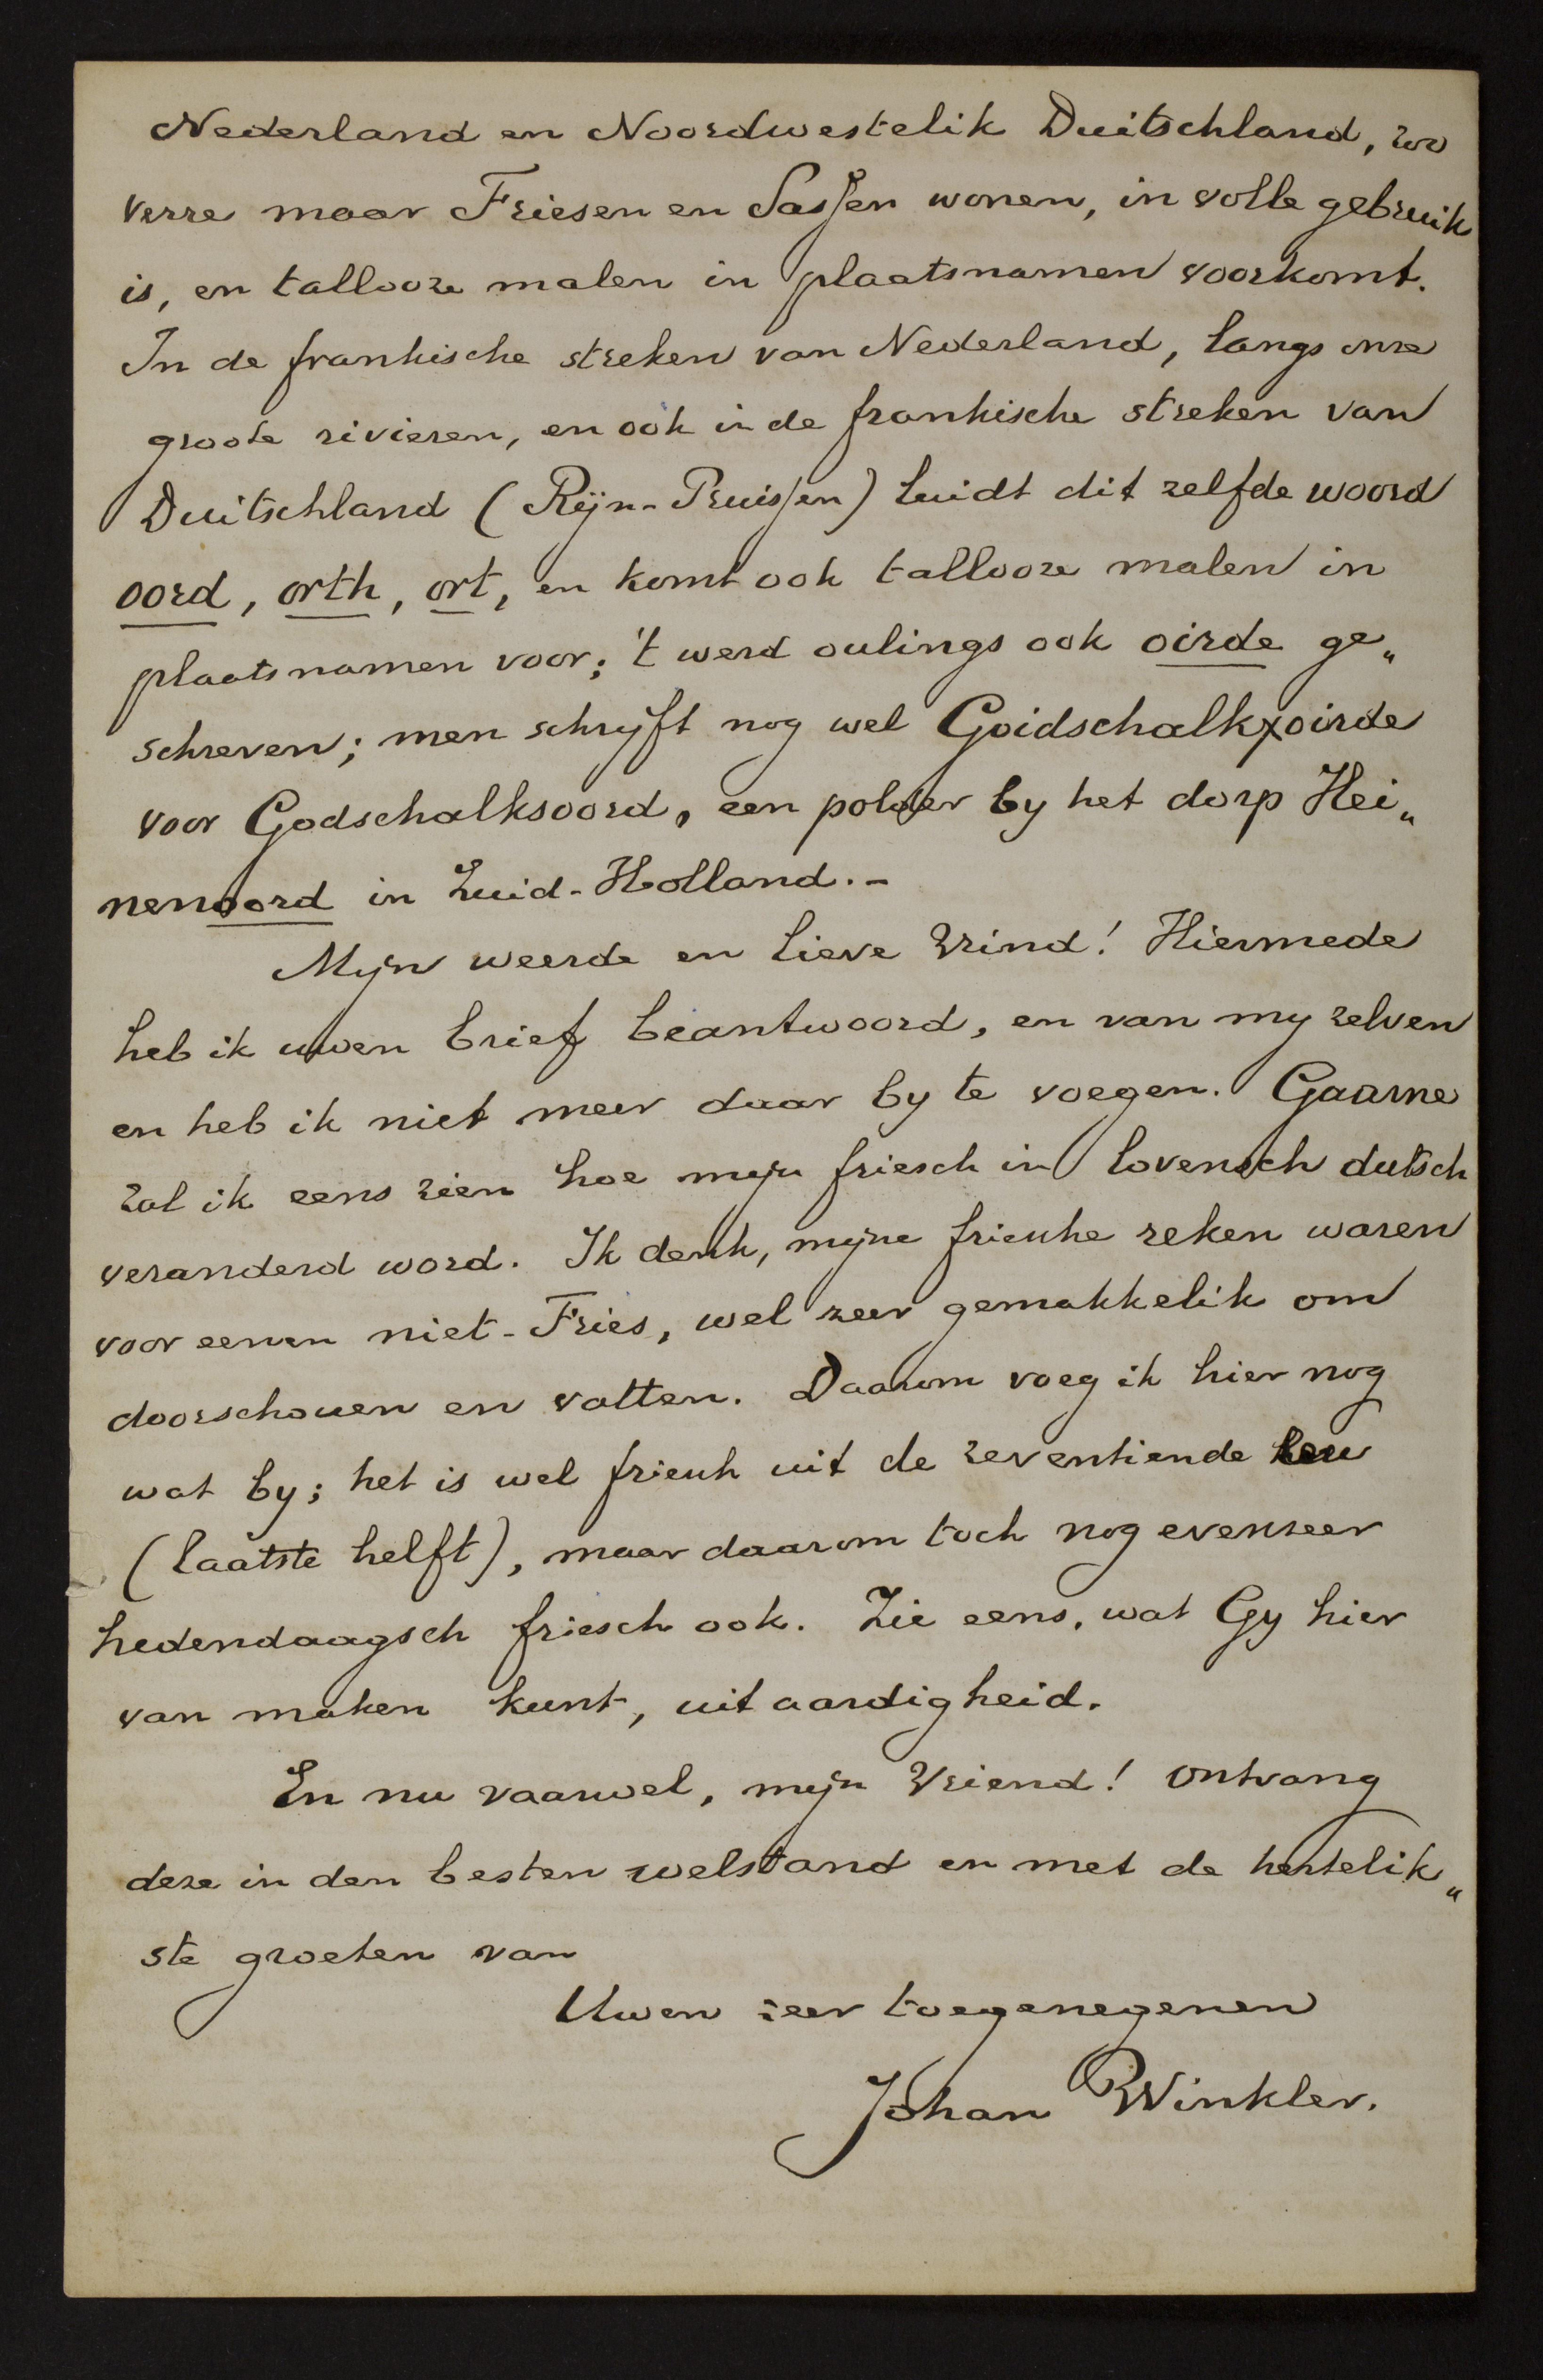 Nederland en Noordwestelik Duitschland, zoo
verre maar Friesen en Sassen wonen, in volle gebruik
is, en tallooze malen in plaatsnamen voorkomt.
In de frankische streken van Nederland, langs onze
groote rivieren, en ook in de frankische streken van
Duitschland (Rijn-Pruissen) luidt dit zelfde woord
oord, orth, ort, en komt ook tallooze malen in
plaatsnamen voor; 't werd oulings ook oirde ge„
schreven; men schrijft nog wel Goidschalkxoirde
voor Godschalksoord, een polder by het dorp Hei„
nenoord in Zuid-Holland.-
Mijn weerde en lieve Vrind! Hiermede
heb ik uwen brief beantwoord, en van my zelven
en heb ik niet meer daar by te voegen. Gaarne
zal ik eens zien hoe mijn friesch in lovensch dutsch
veranderd word. Ik denk, mijne friesche reken waren
voor eenen niet-Fries, wel zeer gemakkelik om
doorschouen en vatten. Daarom voeg ik hier nog
wat by; het is wel friesch uit de zeventiende eeu
(laatste helft), maar daarom toch nog evenzeer
hedendaagsch friesch ook. Zie eens, wat Gy hier
van maken kunt, uit aardigheid.
En nu vaarwel, mijn Vriend! Ontvang
deze in den besten welstand en met de hertelik„
ste groeten van
Uwen zeer toegenegenen
Johan Winkler.